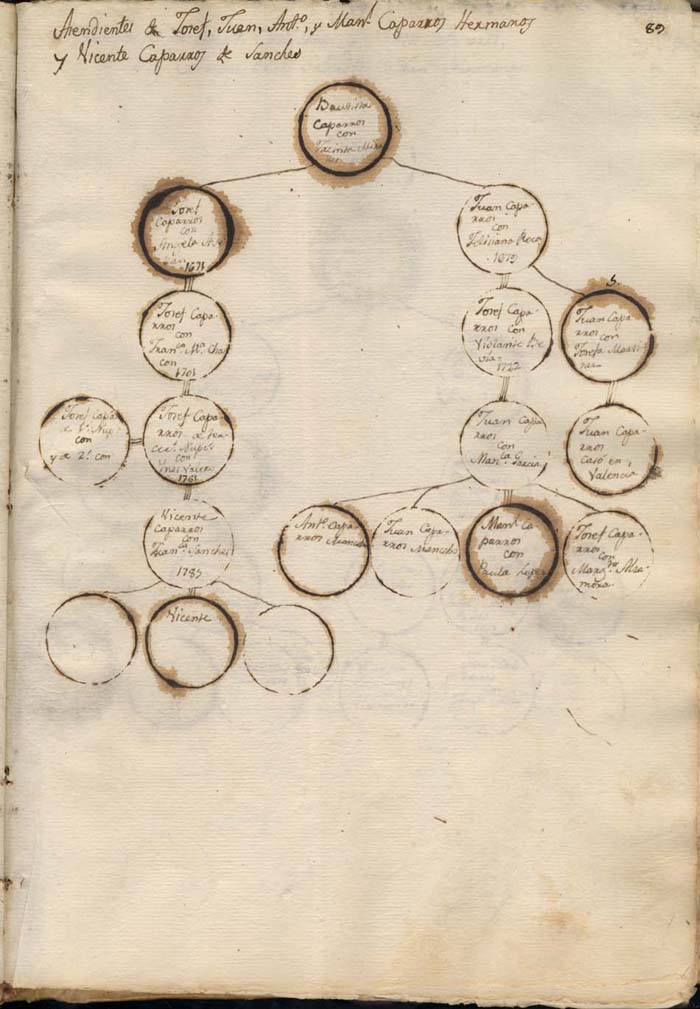 Asendientes de Josef, Juan, Antº, y Manl Caparros Hermanos
y Vicente Caparros de Sanches
89
Bautista
Caparros
con
Jacinta
Josef
Caparros
con
Angela
1671
Juan Capa-
rros
con
Feliciana Roca
1679
Josef Capa-
rros
con
Franca Ma Cha
con
1701
Josef Capa-
rros con
Violante
1722
5.
Juan Capa-
rros
con
Josefa Marti
nez
Josef Capar
de 1ª Nup.
con
y de 2ª con
Josef Capa-
rros de ter-
ceras Nups
con
Ines Valero
1761
Juan Capa
rros
con
Manla Garcia
Juan Capa-
rros
casó en
Valencia
Vicente
Caparros
con
Franca Sanches
1785
Antº Capa-
rros Mancebo
Juan Capa-
rros Mancebo
Manl Ca-
parros
con
Paula Lopez
Josef Capa-
rros
con
Alza-
mora
Vicente